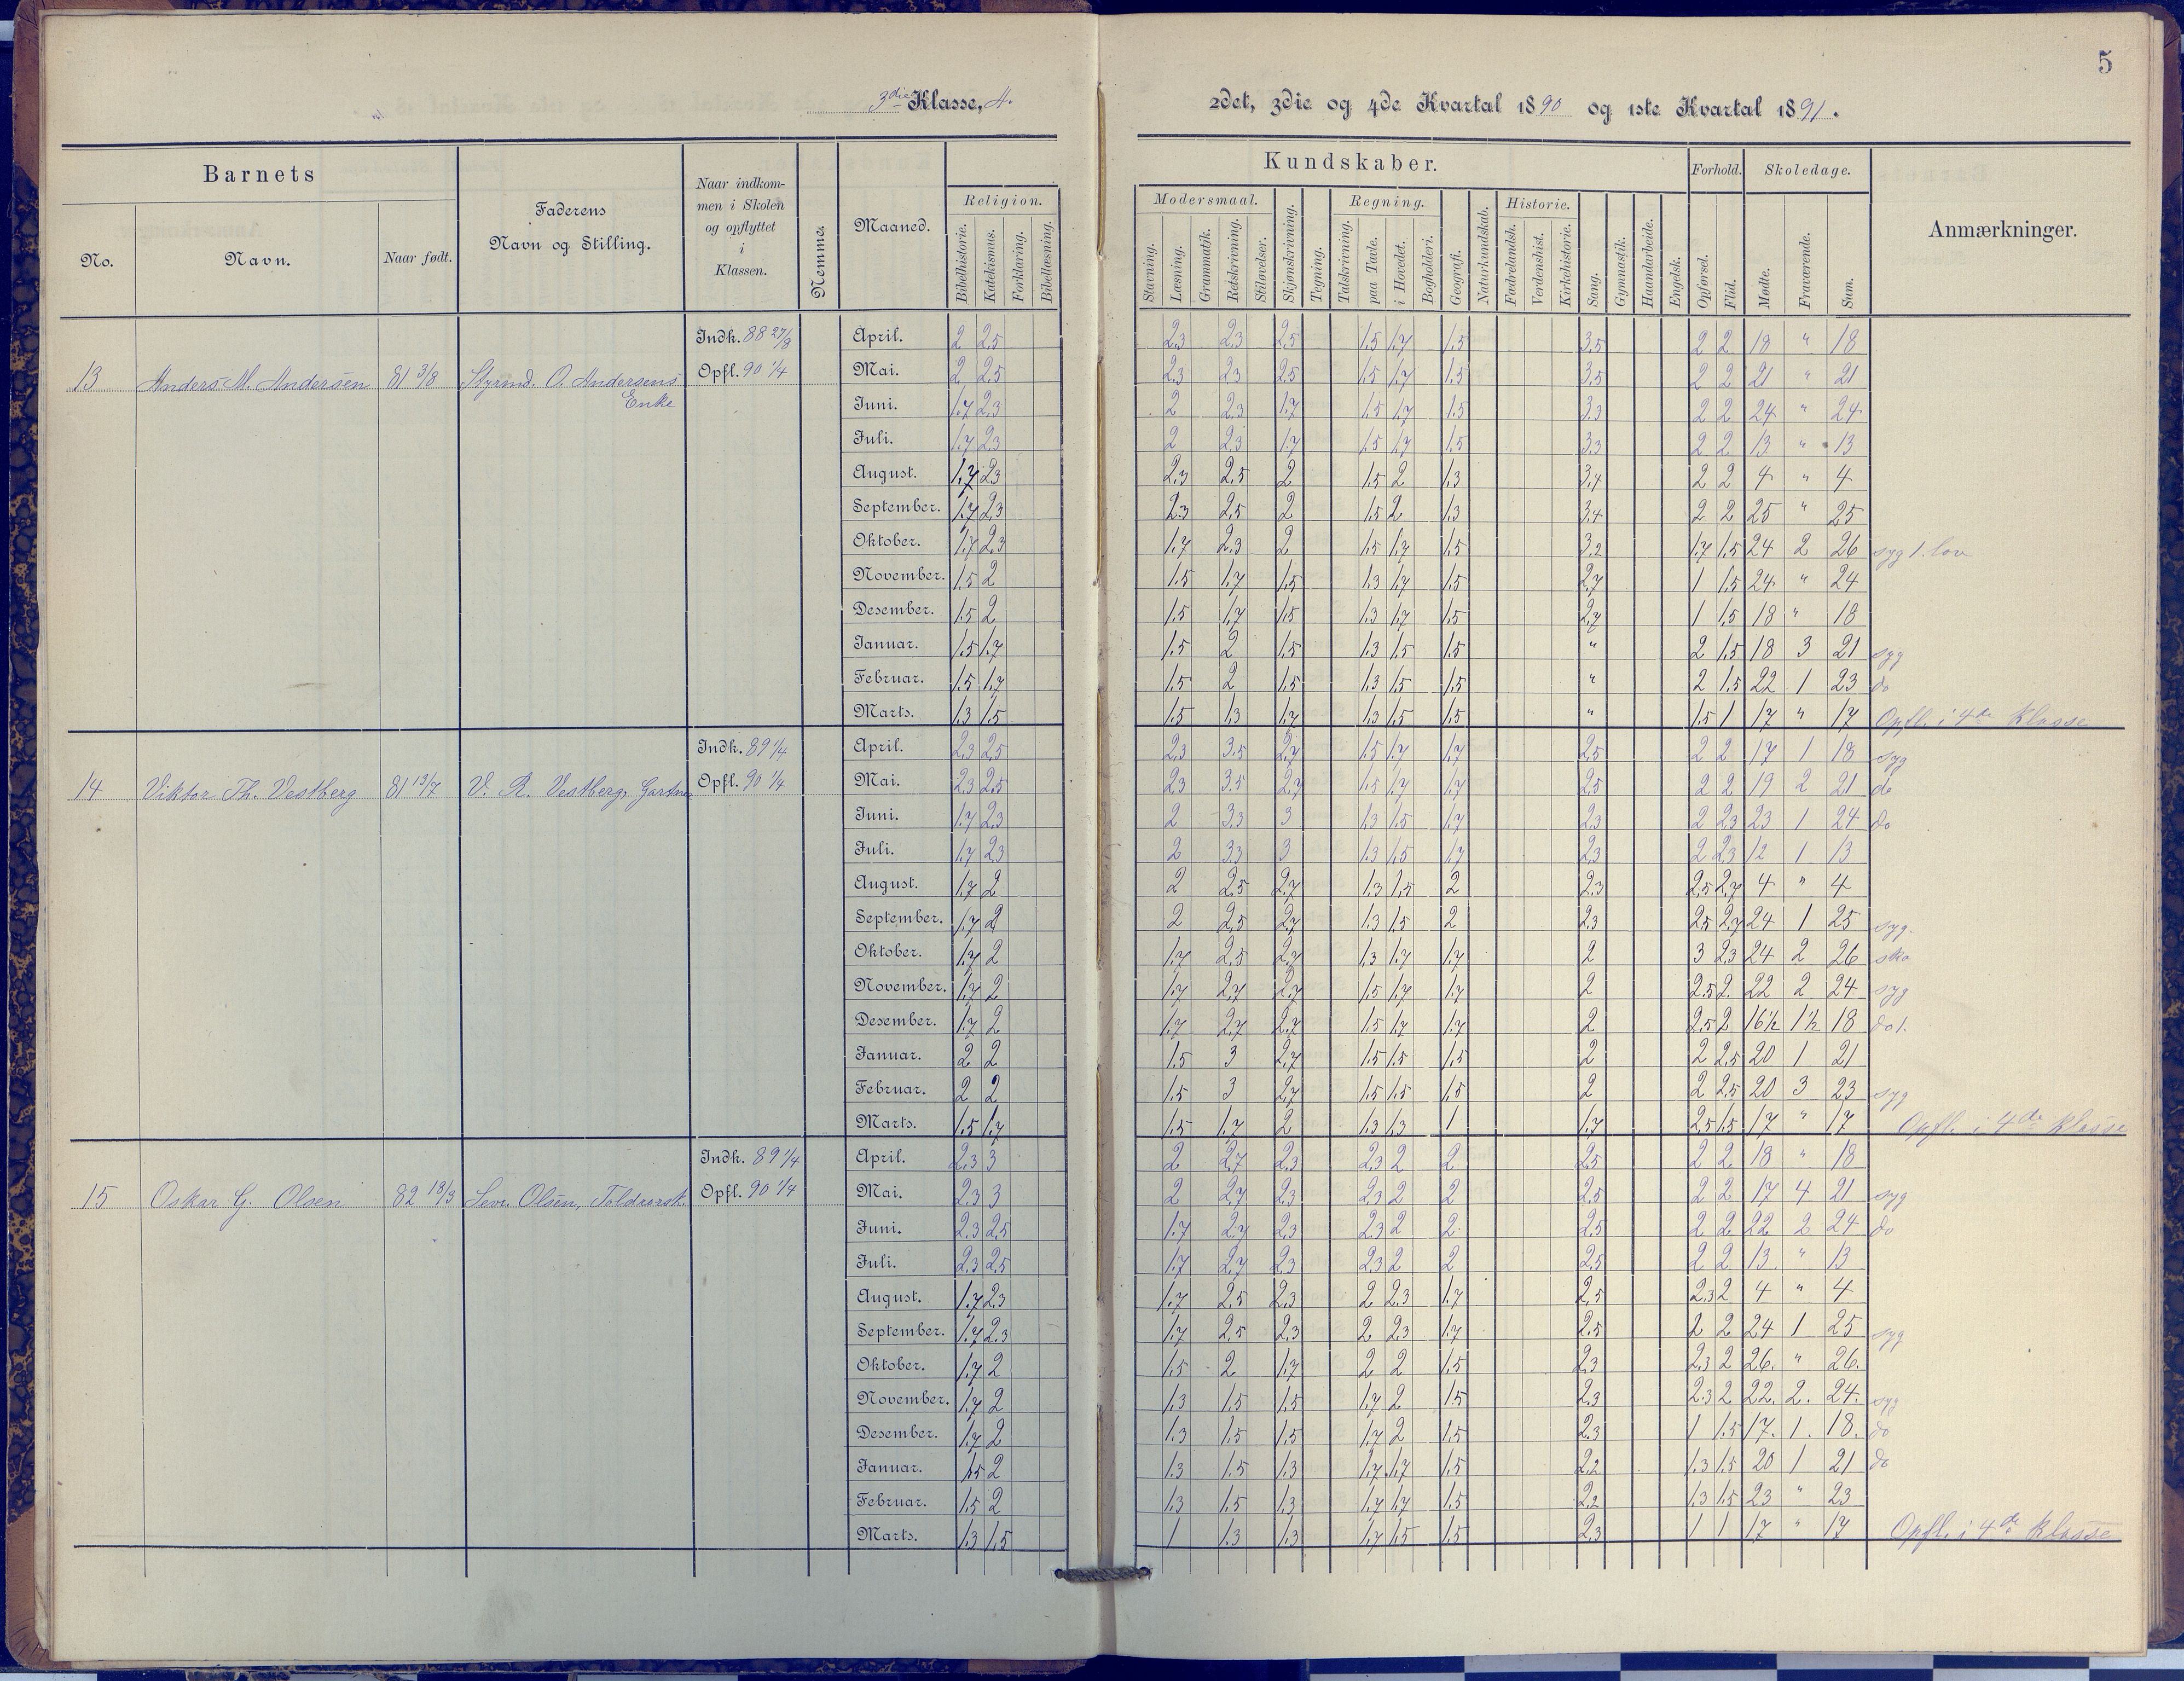 5
3die Klasse, A.
2det, 3die og 4de Kvartal 1890 og 1ste Kvartal 1891.
Barnets
Faderens Navn og Stilling.
Naar indkommen i Skolen og opflyttet i Klassen.
Nemme.
Maaned.
Religion.
Kundskaber.
Forhold.
Skoledage.
Anmærkninger.
No.
Navn.
Naar født.
Bibelhistorie.
Katekismus.
Forklaring.
Bibellæsning.
Modersmaal.
Stavning.
Læsning.
Grammatik.
Retskrivning.
Stiløvelser.
Skjønskrivning.
Tegning.
Regning.
Talskrivning.
paa Tavle.
i Hovedet.
Bogholderi.
Geografi.
Naturkundskab.
Historie.
Fædrelandsh.
Verdenshist.
Kirkehistorie.
Sang.
Gymnastik.
Haandarbeide.
Engelsk.
Opførsel.
Flid.
Mødte.
Fraværende.
Sum.
13 Anders M. Andersen 81 3/8 Styrmd. O. Andersens Enke
Indk. 88 27/8
Opfl. 90 1/4
April. 2 2,5 2,3 2,3 2,5 1,5 1,7 1,5 3,5 2 2 18 " 18
Mai. 2 2,5 2,3 2,3 2,5 1,5 1,7 1,5 3,5 2 2 21 " 21
Juni. 1,7 2,3 2 2,3 1,7 1,5 1,7 1,5 3,3 2 2 24 " 24
Juli. 1,7 2,3 2 2,3 1,7 1,5 1,7 1,5 3,3 2 2 13 " 13
August. 1,7 2,3 2,3 2,5 2 1,5 2 1,3 3,4 2 2 4 " 4
September. 1,7 2,3 2,3 2,5 2 1,5 2 1,3 3,4 2 2 25 " 25
Oktober. 1,7 2,3 1,7 2,3 2 1,5 1,7 1,5 3,2 1,7 1,5 24 2 26 syg 1. lov
November. 1,5 2 1,5 1,7 1,5 1,3 1,7 1,5 2,7 1 1,5 24 " 24
Desember. 1,5 2 1,5 1,7 1,5 1,3 1,7 1,5 2,7 1 1,5 18 " 18
Januar. 1,5 1,7 1,5 2 1,5 1,3 1,5 1,5 " 2 1,5 18 3 21 syg
Februar. 1,5 1,7 1,5 2 1,5 1,3 1,5 1,5 " 2 1,5 22 1 23 do
Marts. 1,3 1,5 1,5 1,3 1,7 1,3 1,5 1,5 " 1,5 1 17 " 17 Opfl. i 4de Klasse
14 Viktor Th. Vestberg 81 13/7 V. R. Vestberg, Gartner
Indk. 89 1/4
Opfl. 90 1/4
April. 2,3 2,5 2,3 3,5 2,7 1,5 1,7 1,7 2,5 2 2 17 1 18 syg
Mai. 2,3 2,5 2,3 3,5 2,7 1,5 1,7 1,7 2,5 2 2 19 2 21 do
Juni. 1,7 2,3 2 3,3 3 1,3 1,5 1,7 2,3 2 2,3 23 1 24 do
Juli. 1,7 2,3 2 3,3 3 1,3 1,5 1,7 2,3 2 2,3 12 1 13
August. 1,7 2 2 2,5 2,7 1,3 1,5 2 2,3 2,5 2,7 4 " 4
September. 1,7 2 2 2,5 2,7 1,3 1,5 2 2,3 2,5 2,7 24 1 25 syg.
Oktober. 1,7 2 1,7 2,5 2,7 1,3 1,7 1,7 2 3 2,3 24 2 26 sko
November. 1,7 2 1,7 2,7 2,7 1,5 1,7 1,7 2 2,5 2. 22 2 24 syg
Desember. 1,7 2 1,7 2,7 2,7 1,5 1,7 1,7 2 2,5 2 16 1/2 1 1/2 18 do 1.
Januar. 2 2 1,5 3 2,7 1,5 1,5 1,5 2 2 2,5 20 1 21
Februar. 2 2 1,5 3 2,7 1,5 1,5 1,5 2 2 2,5 20 3 23 syg
Marts. 1,5 1,7 1,5 1,7 2 1,3 1,3 1 1,7 2,5 1,5 17 " 17 Opfl. i 4de Klasse
15 Oskar G. Olsen 82 18/3 Sevr. Olsen, Toldroersk.
Indk. 89 1/4
Opfl. 90 1/4
April. 2,3 3 2 2,7 2,3 2,3 2 2 2,5 2 2 18 " 18
Mai. 2,3 3 2 2,7 2,3 2,3 2 2 2,5 2 2 17 4 21 syg
Juni. 2,3 2,5 1,7 2,7 2,3 2,3 2 2 2,5 2 2 22 2 24 do
Juli. 2,3 2,5 1,7 2,7 2,3 2,3 2 2 2,5 2 2 13 " 13
August. 1,7 2,3 1,7 2,5 2,3 2 2,3 1,7 2,5 2,3 2 4 " 4
September. 1,7 2,3 1,7 2,5 2,3 2 2,3 1,7 2,5 2 2 24 1 25 syg
Oktober. 1,7 2 1,5 2 1,7 2 2 1,5 2,3 2,3 2 26. " 26.
November. 1,7 2 1,3 1,5 1,5 1,7 2 1,5 2,3 2,3 2 22. 2. 24. syg
Desember. 1,7 2 1,3 1,5 1,5 1,7 2 1,5 2,3 1 1,5 17. 1. 18. do
Januar. 1,5 2 1,3 1,5 1,3 1,7 1,7 1,5 2,2 1,3 1,5 20 1 21 do
Februar. 1,5 2 1,3 1,5 1,3 1,7 1,7 1,5 2,2 1,3 1,5 23 " 23
Marts. 1,3 1,5 1 1,3 1,3 1,7 1,5 1,5 2,3 1 1 17 " 17 Opfl. i 4de Klasse